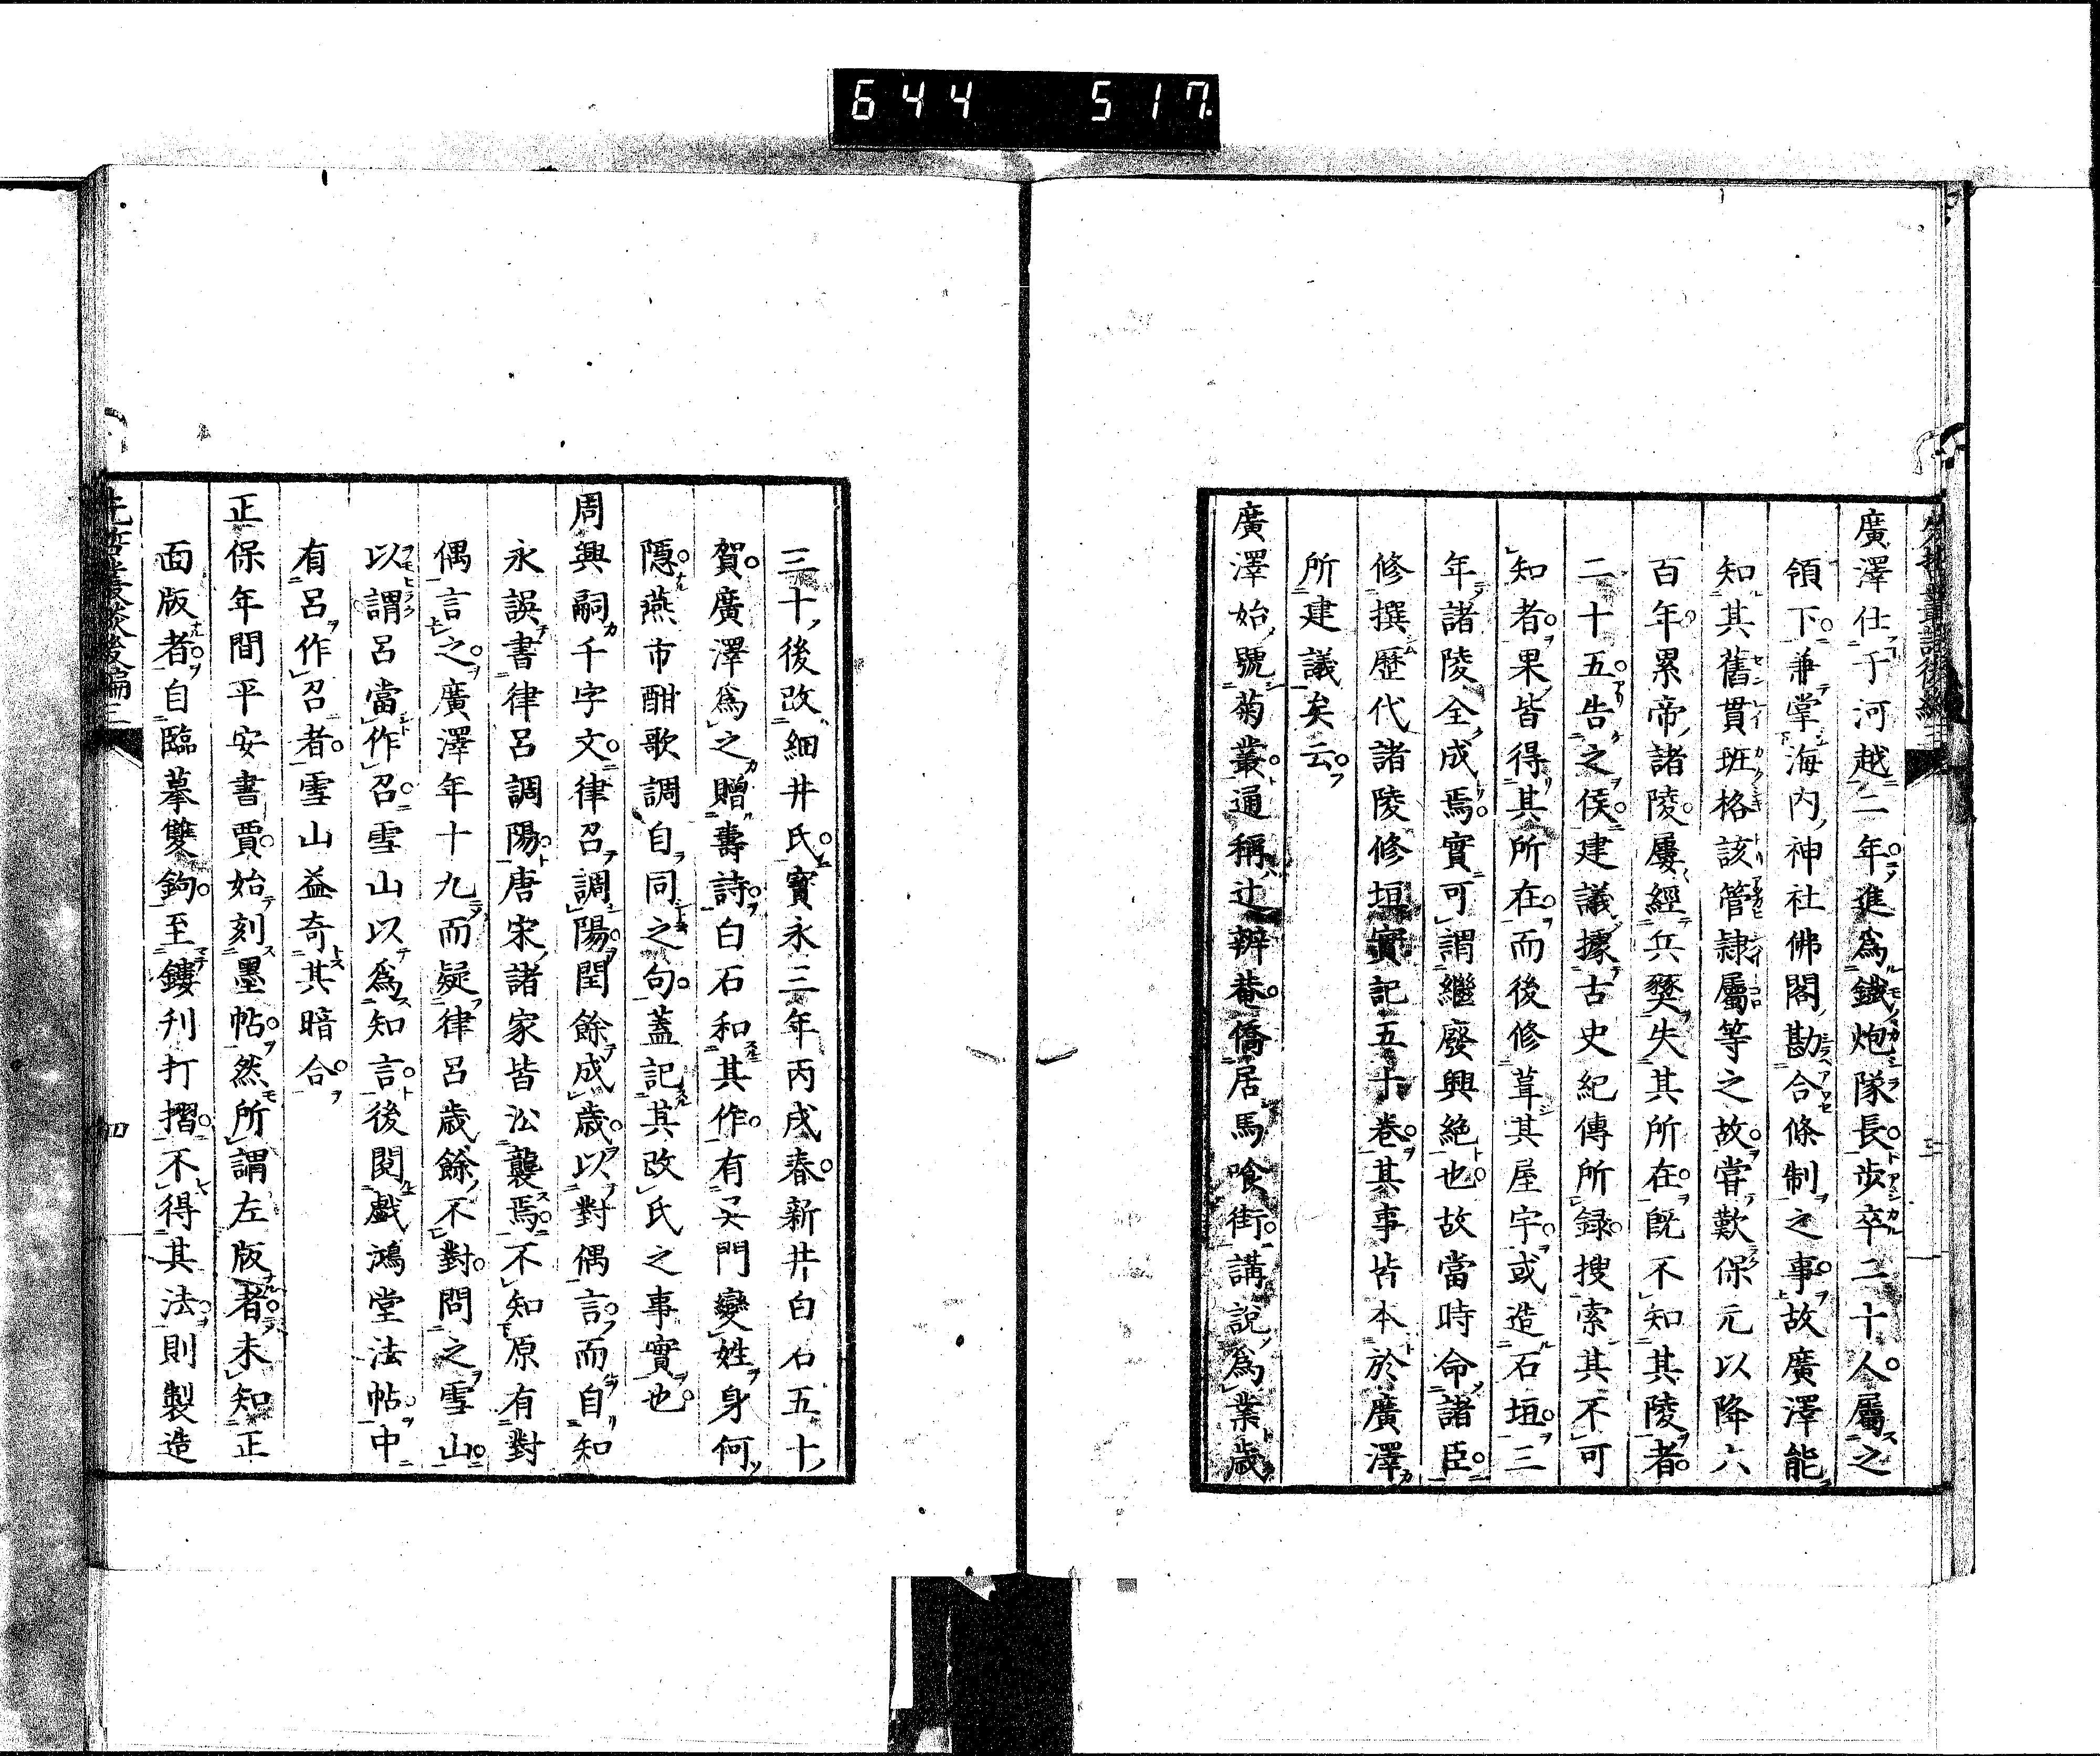 644 517
廣澤仕于河越二年進爲鐵炮隊長步卒二十人屬之
領下兼掌海内神社佛閣勘合條制之事故廣澤能
知其舊貫班格該管隷屬等之故嘗歎保元以降六
百年累帝諸陵屢經兵燹失其所在既不知其陵者
二十五告之侯建議據古史紀傳所録搜索其不可
知者果皆得其所在而後修葺其屋宇或造石垣三
年諸陵全成焉實可謂繼廢興絶也故當時命諸臣
修撰歷代諸陵修垣實記五十卷其事皆本於廣澤
所建議矣云
廣澤始號菊叢通稱辻辨菴僑居馬喰街講說爲業歲
三十後改細井氏寶永三年丙戌春新井白石五十
賀廣澤爲之贈壽詩白石和其作有吴門變姓身何
隱燕市酣歌調自同之句蓋記其改氏之事實也
周興嗣千字文律召調陽閏餘成歲以對偶言而自知
永誤書律呂調陽唐宋諸家皆沿襲焉不知原有對
偶言之廣澤年十九而疑律呂歲餘不對問之雪山
以謂呂當作召雪山以爲知言後閲戲鴻堂法帖中
有呂作召者雪山益奇其暗合
正保年間平安書賈始刻墨帖然所謂左版者未知正
面版者自臨摹雙鉤至鏤刋打摺不得其法則製造
先哲叢談後編三
四